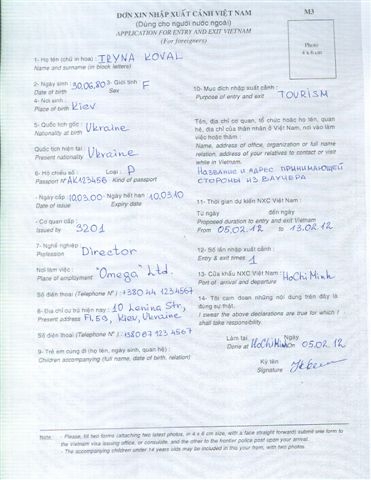 ĐƠN XIN NHẬP XUẤT CẢNH VIỆT NAM
M3
(Dùng cho người nước ngoài)
APPLICATION FOR ENTRY AND EXIT VIETNAM
(For foreigners)
Photo
4 x 6 cm
1- Họ tên (chữ in hoa) : IRYNA KOVAL
Name and surname (in block letters)
2- Ngày sinh : 30.06.80 3- Giới tính F
Date of birth Sex
4- Nơi sinh :
Place of birth Kiev
5- Quốc tịch gốc : Ukraine
Nationality at birth
Quốc tịch hiện tại : Ukraine
Present nationality
6- Hộ chiếu số : Loại : P
Passport N° AK123456 Kind of passport
- Ngày cấp : 10.03.00 - Ngày hết hạn 10.03.10
Date of issue Expiry date
- Cơ quan cấp :
Issued by 3201
7- Nghề nghiệp : Director
Profession
Nơi làm việc : "Omega" Ltd.
Place of employment
Số điện thoại (Telephone N°) : +38044 1234567
8- Địa chỉ cư trú hiện nay : 10 Lenina Str,
Present address Fl. 59, Kiev, Ukraine
Số điện thoại (Telephone N°) : +38067 123 4567
9- Trẻ em cùng đi (họ tên, ngày sinh, quan hệ) :
Children accompanying (full name, date of birth, relation)
10- Mục đích nhập xuất cảnh :
Purpose of entry and exit TOURISM
Tên, địa chỉ cơ quan, tổ chức hoặc họ tên, quan
hệ, địa chỉ của thân nhân ở Việt Nam, nơi vào làm
việc hoặc thăm :
Name, address of office, organization or full name
relation, address of relatives to contact or visit
while in Vietnam.
НАЗВАНИЕ И АДРЕС ПРИНИМАЮЩЕЙ
СТОРОНЫ ИЗ ВАУЧЕРА
11- Thời gian dự kiến NXC Việt Nam :
Từ ngày đến ngày
Proposed duration to entry and exit Vietnam
From 05.02.12 to 13.02.12
12- Số lần nhập xuất cảnh :
Entry & exit times 1
13- Cửa khẩu NXC Việt Nam : Ho Chi Minh
Port of arrival and departure
14- Tôi cam đoan những nội dung trên đây là
đúng sự thật.
I swear the above declarations are true for which I
shall take responsibility.
Làm tại Ngày
Done at Ho Chi Minh on 05.02.12
Ký tên
Signature
Note: - Please, fill two forms (attaching two latest photos, in 4 x 6 cm size, with a face straight forward) submit one form to
the Vietnam visa leaving office, or consulate, and the other to the frontier police post upon your arrival.
- The accompanying children under 14 years olds may be included in this your from, with two photos.